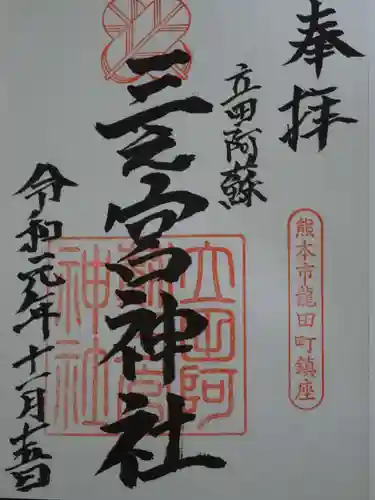 奉拝
熊本市龍田町鎮座
立田阿蘇
三宮神社
立田阿
蘇三宮
神社
令和元年十一月十五日